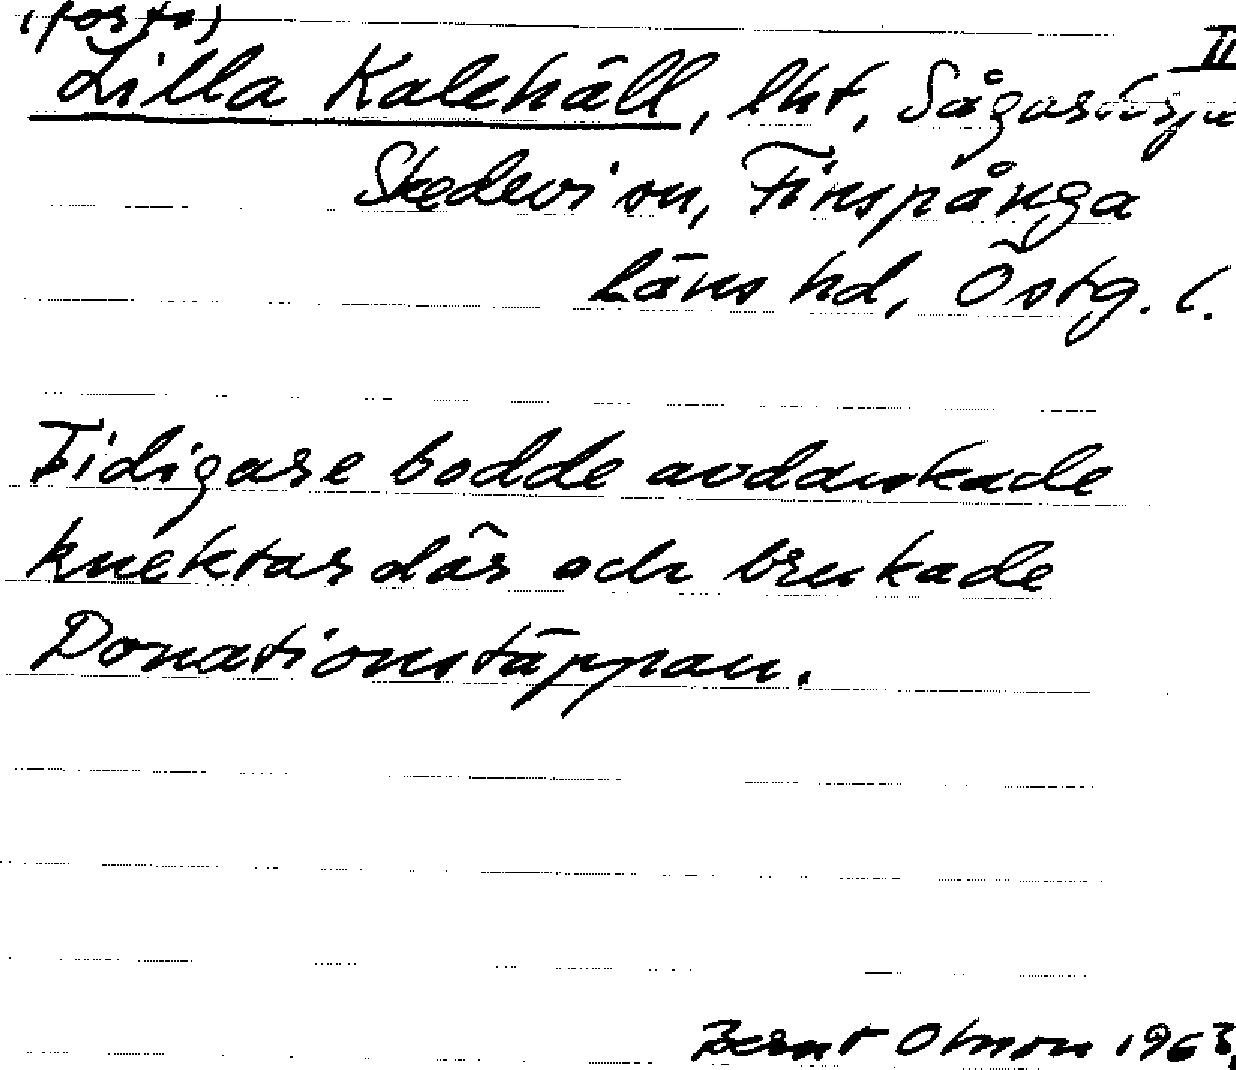 (forts)
II
Lilla Kalehäll, lht, Sågartorpa
Skedevi sn, Finspånga
Läns hd, Östg. l.
Tidigare bodde avdankade
knektar där och brukade
Donationstäppan.
Bernt Olsson 1963